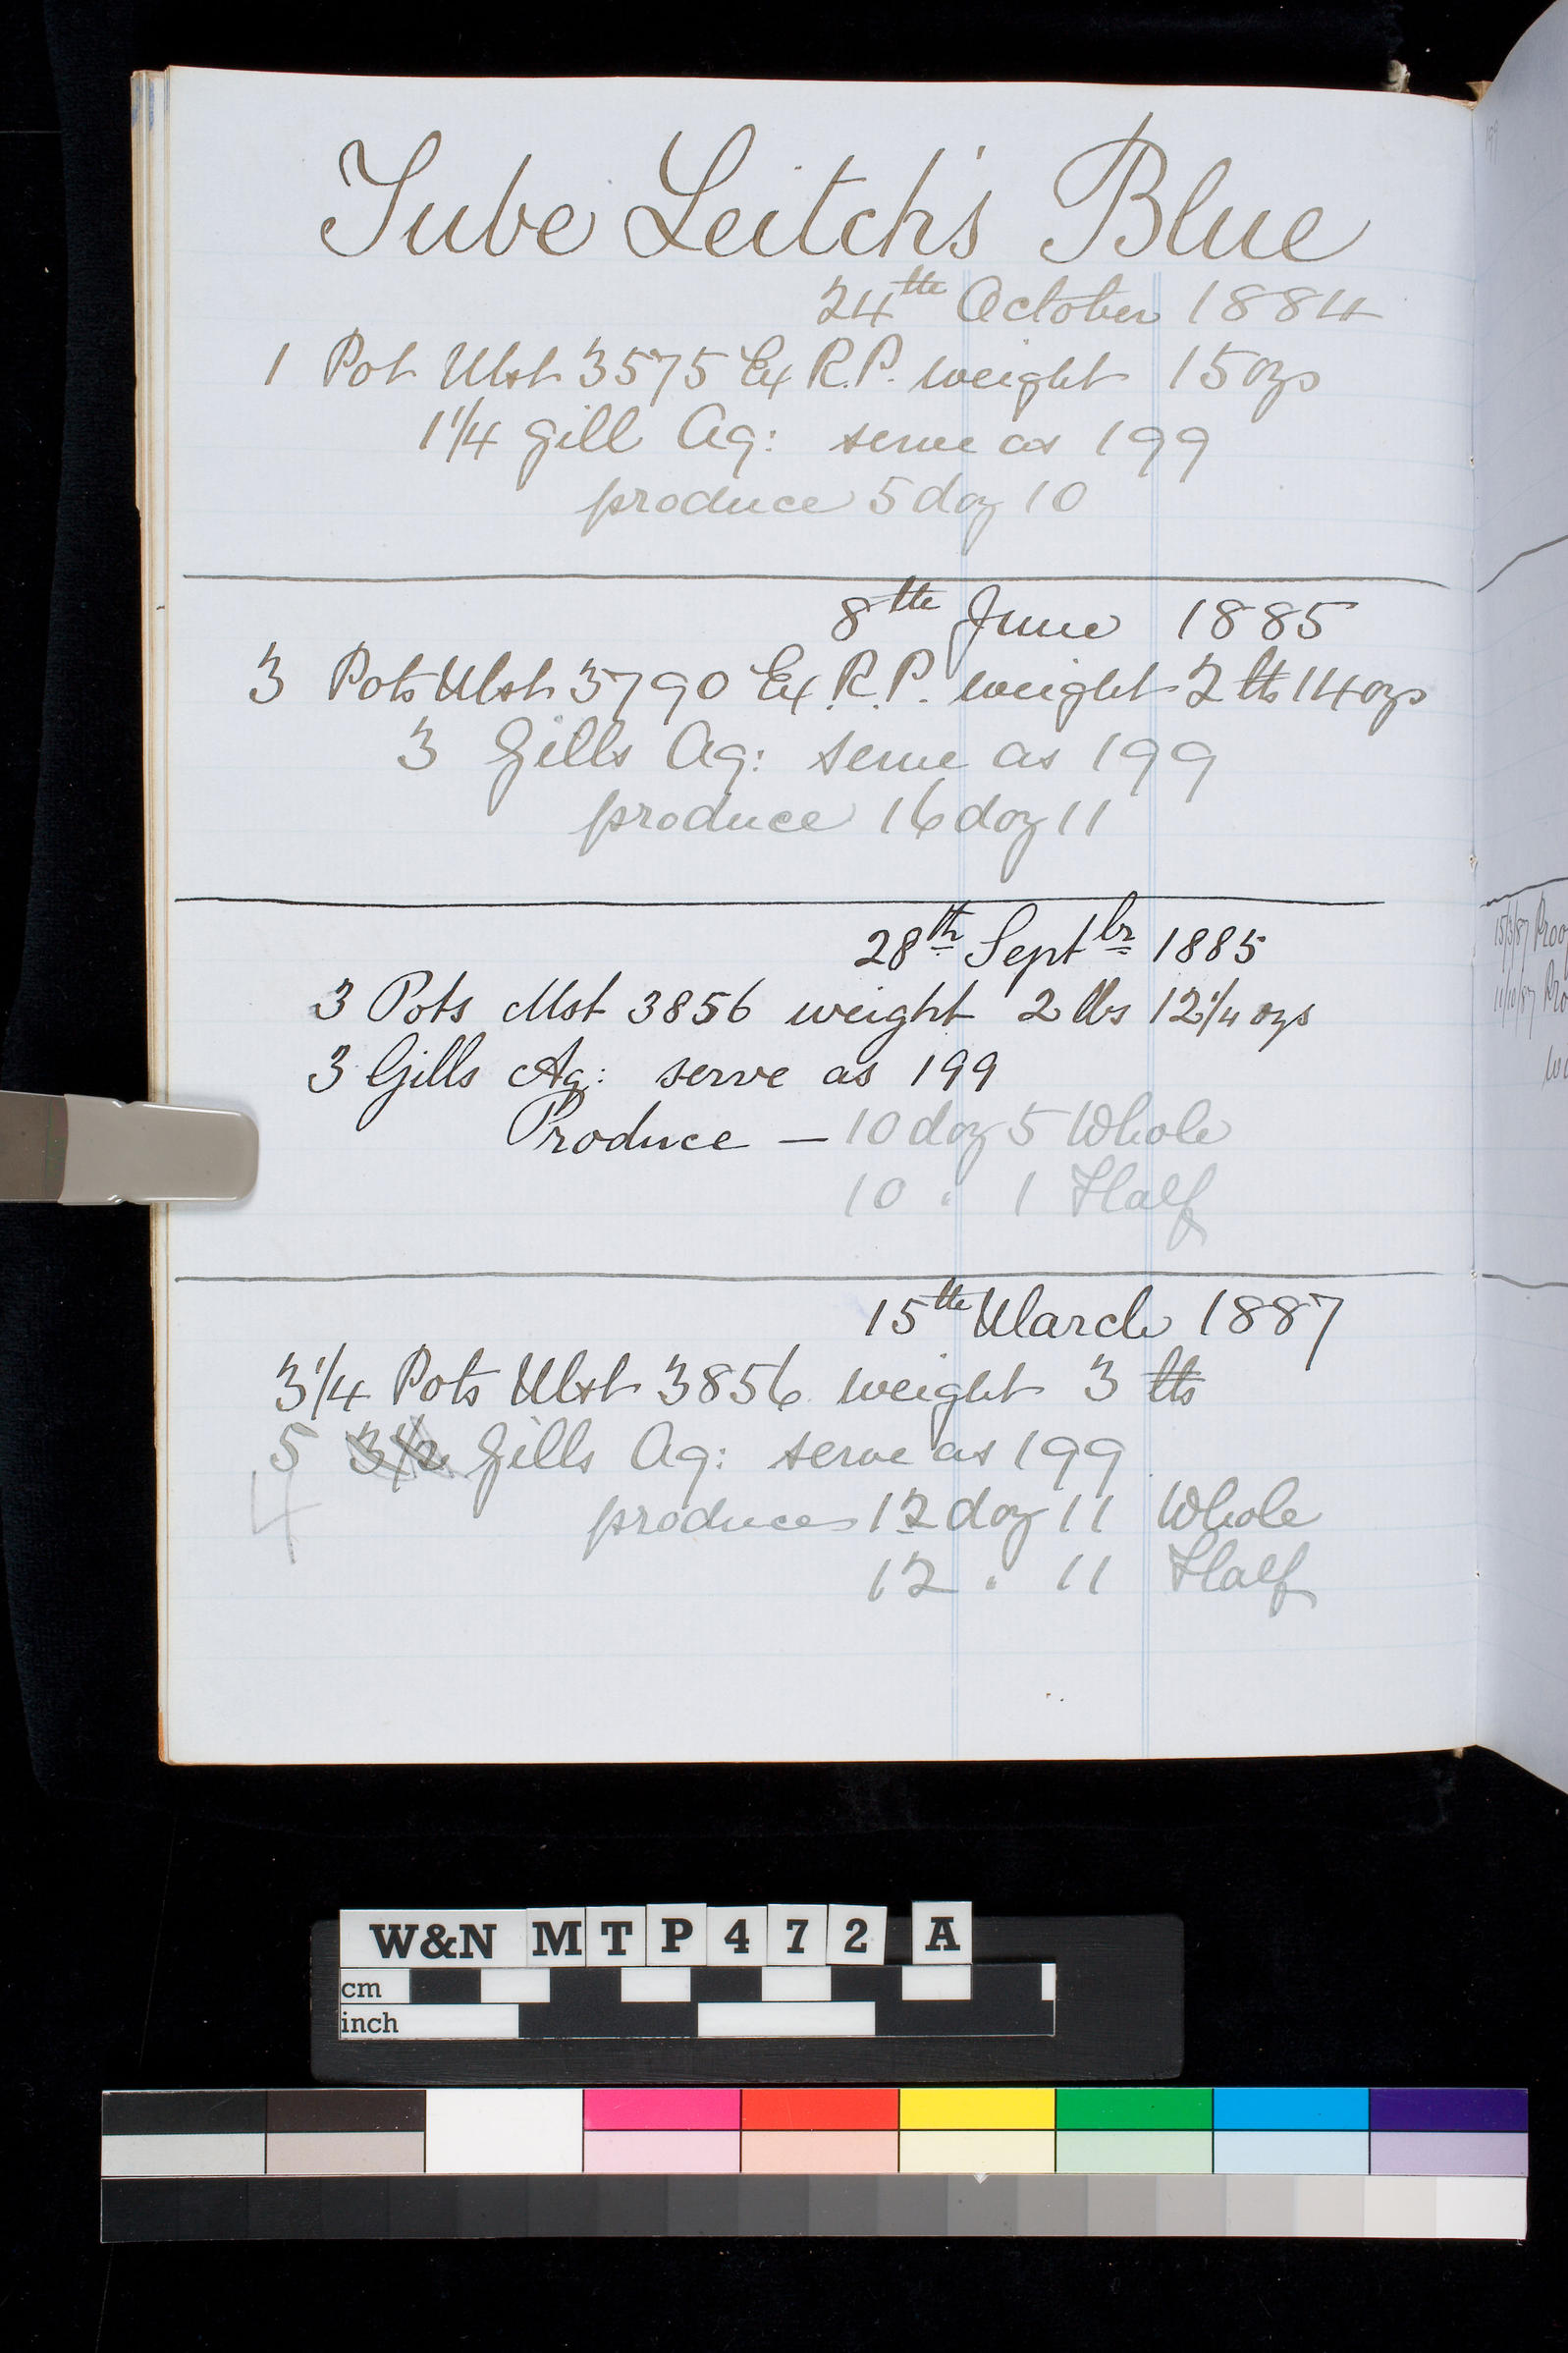 Tube Leitch's Blue
24th October 1884
1 Pot Mst 3575 Ex R.P. weight 15 ozs
1 1/4 gill Aq: serve as 199
produce 5 doz 10
8th June 1885
3 Pots Mst 3790 Ex R.P. weight 2 lbs 14 ozs
3 Gills Aq: serve as 199
produce 16 doz 11
28th Septbr 1885
3 Pots Mst 3856 weight 2 lbs 12 1/4 ozs
3 Gills Aq: serve as 199
Produce — 10 doz 5 Whole
10 " 1 Half
15th March 1887
3 1/4 Pots Mst 3856 weight 3 lbs
5 3 1/2 Gills Aq: serve as 199
4
produces 12 doz 11 Whole
12 " 11 Half
15/3/87
11/10/87
W&N MTP472 A
cm
inch